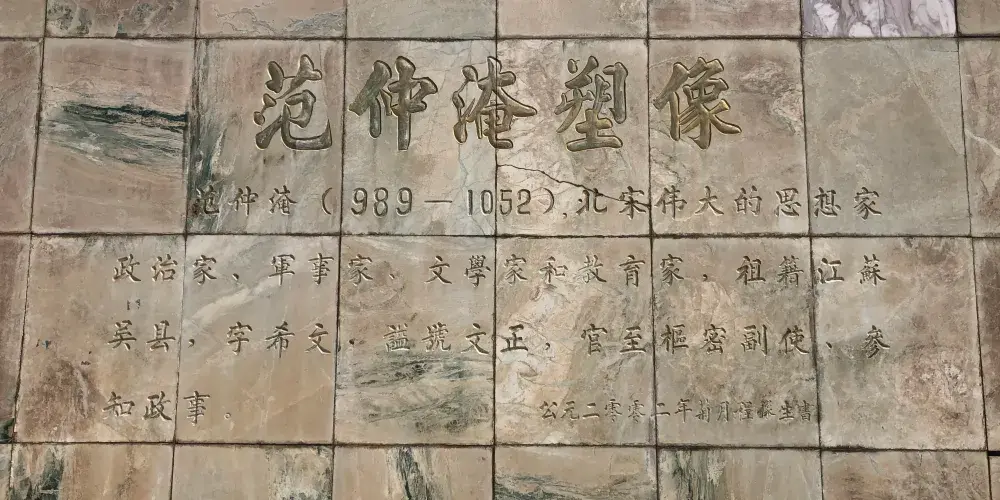 范仲淹塑像
范仲淹（989—1052），北宋伟大的思想家
政治家、軍事家、文學家和教育家，祖籍江蘇
吴县，字希文，諡號文正，官至樞密副使、參
知政事。
公元二零零二年 月 生書